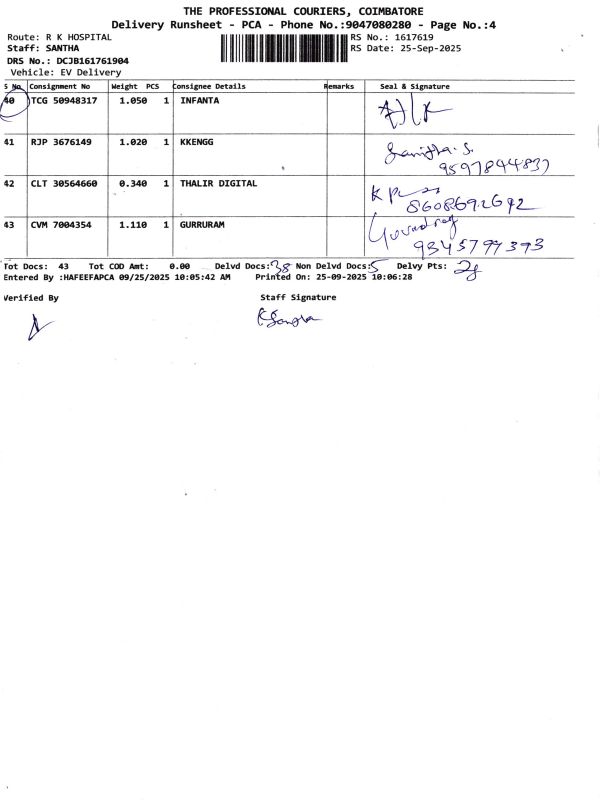 THE PROFESSIONAL COURIERS, COIMBATORE
Delivery Runsheet - PCA - Phone No.:9047080280 - Page No.:4
Route: R K HOSPITAL RS No.: 1617619
Staff: SANTHA RS Date: 25-Sep-2025
DRS No.: DCJB161761904
Vehicle: EV Delivery
S No. Consignment No Weight PCS Consignee Details Remarks Seal & Signature
40 TCG 50948317 1.050 1 INFANTA
41 RJP 3676149 1.020 1 KKENGG
9597844837
42 CLT 30564660 0.340 1 THALIR DIGITAL
8608692692
43 CVM 7004354 1.110 1 GURRURAM
9345799393
Tot Docs: 43 Tot COD Amt: 0.00 Delvd Docs: 38 Non Delvd Docs: 5 Delvy Pts:
Entered By :HAFEEFAPCA 09/25/2025 10:05:42 AM Printed On: 25-09-2025 10:06:28
Verified By Staff Signature